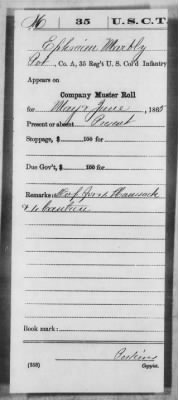 M 35 U.S.C.T.
Ephraim Marbly
Pvt, Co. A, 35 Reg't U. S. Col'd Infantry
Appears on
Company Muster Roll
for May & June, 1865
Present or absent Present
Stoppage, $ 100 for
Due Gov't, $ 100 for
Remarks:
& 1 Canteen
Book mark:
Perkins
(358) Copyist.